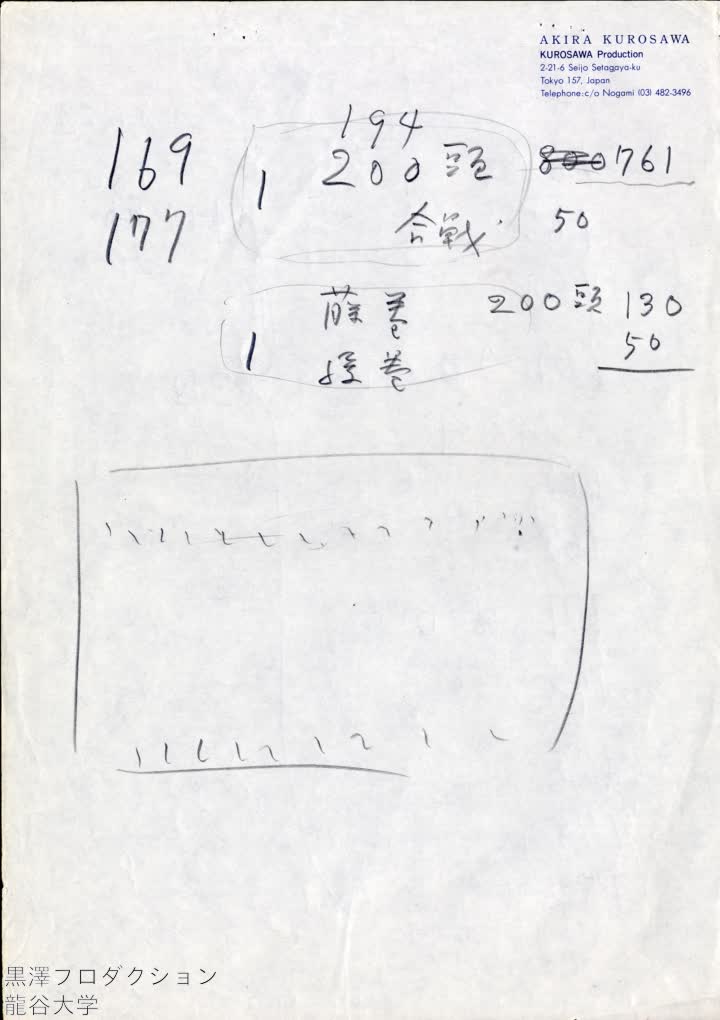 AKIRA KUROSAWA
KUROSAWA Production
2-21-6 Seijo Setagaya-ku
Tokyo 157, Japan
Telephone: c/o Nogami (03) 482-3496
194
169 1 200頭 800 761
177 合戦 50
藤巻 200頭 130
1 50
巻
黒澤プロダクション
龍谷大学